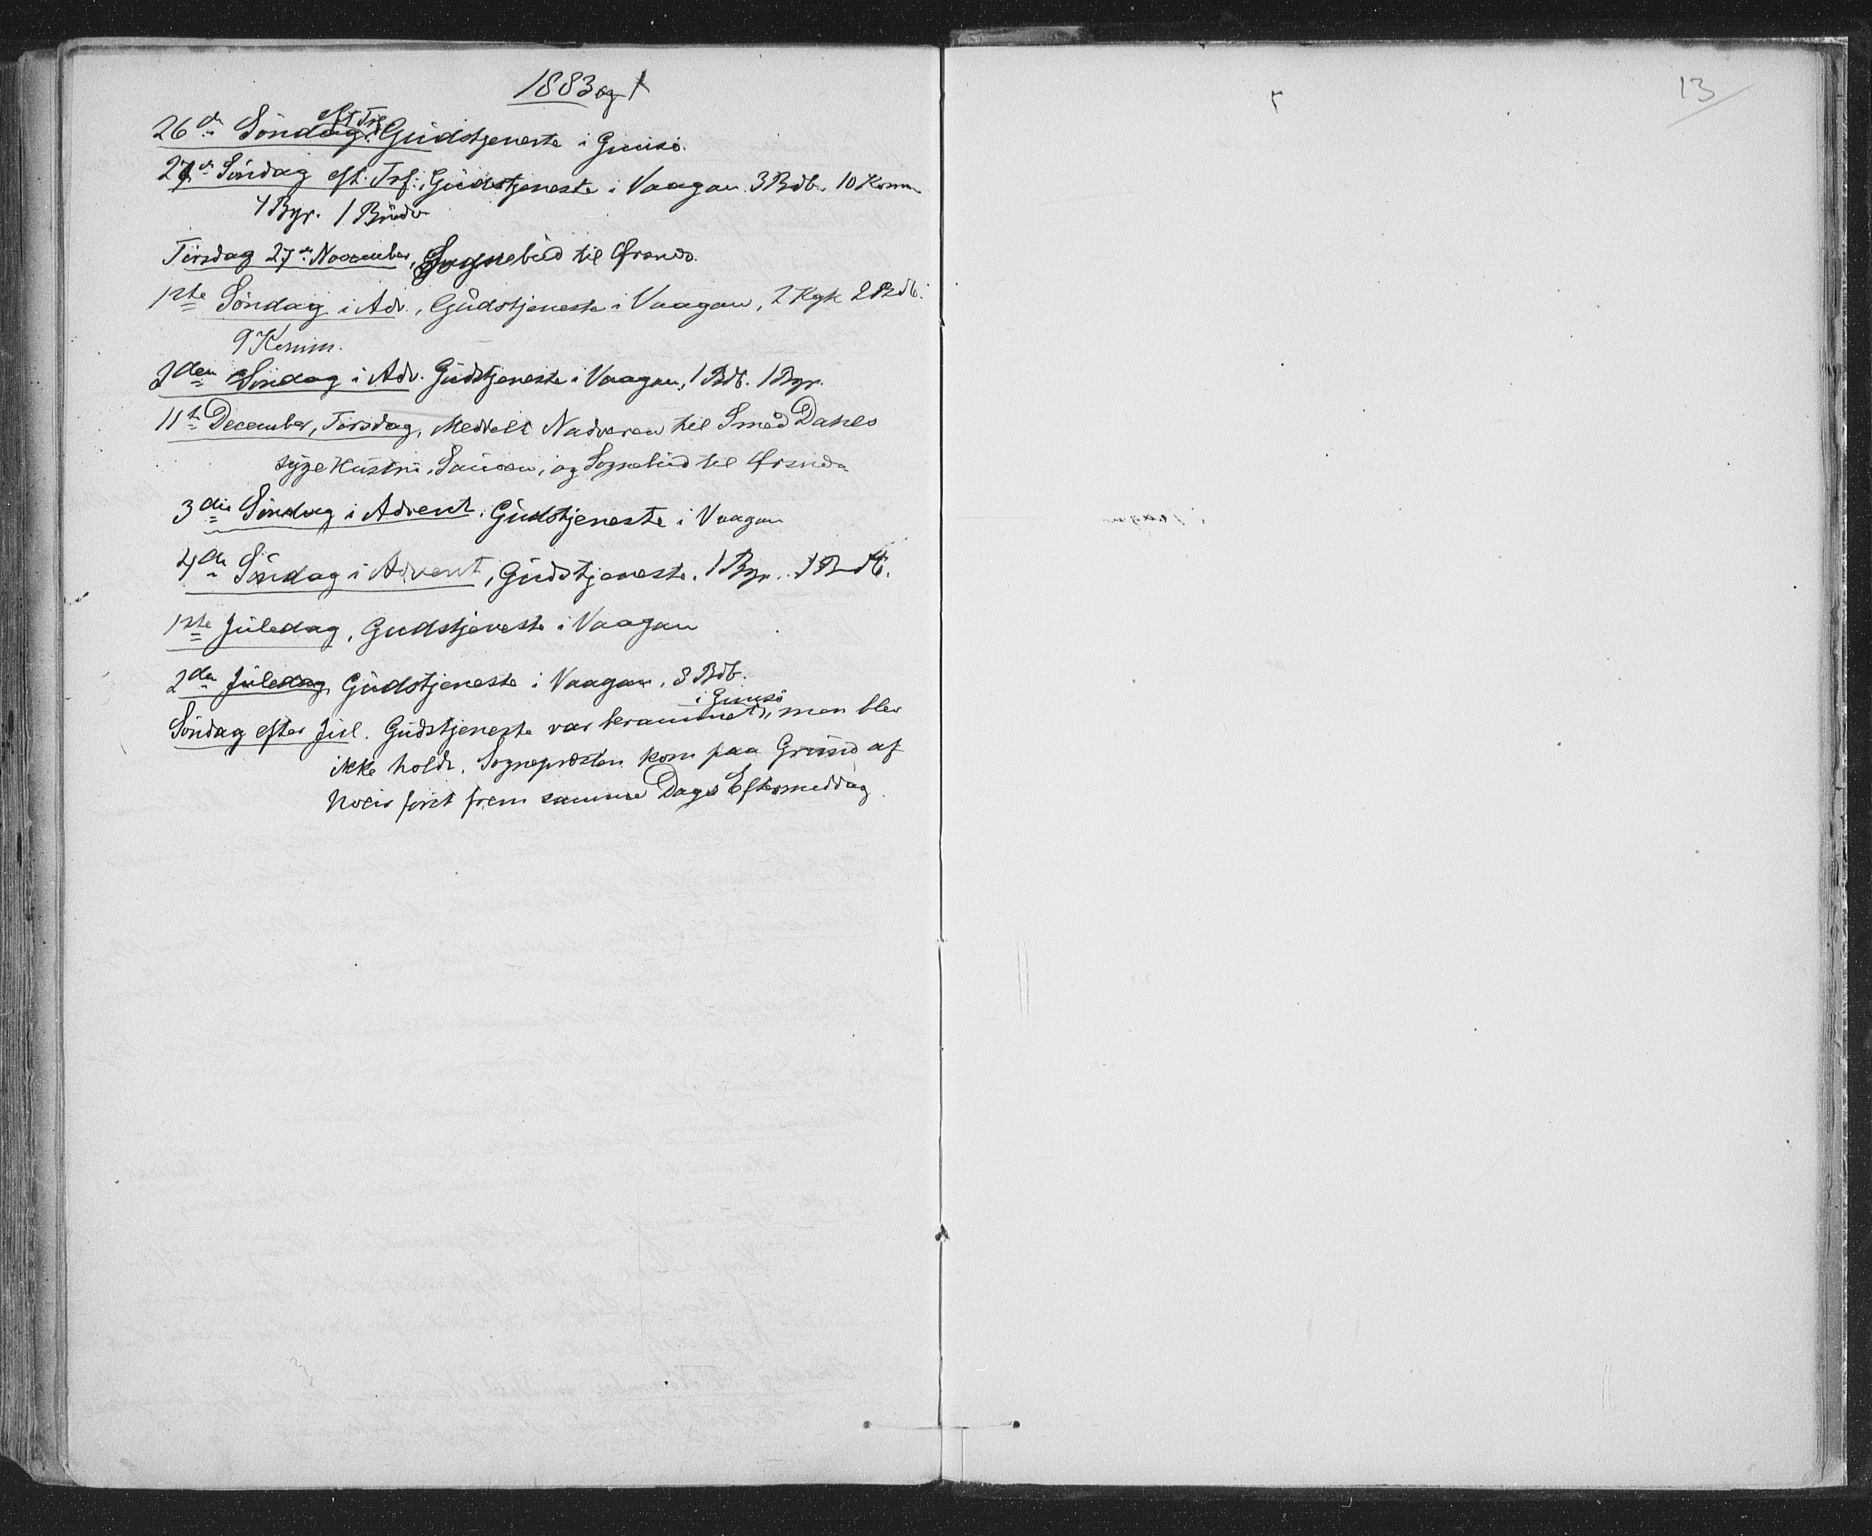 1883 og
26de Søndag eft Trf Gudstjeneste i Gimsø.
27de Søndag eft. Trf., Gudstjeneste i Vaagan. 3 Bdb. 10 Komm
4 Bgr. 1 Brudv
Tirsdag 27de November, Sognebud til Ørsnes.
1ste Søndag i Adv., Gudstjeneste i Vaagan, 2 Kgk 2 Bdb.
9 Komm.
2den Søndag i Adv. Gudstjeneste i Vaagan, 1 Bdb. 1 Bgr.
11te December, Tirsdag, Meddelt Nadveren til Smed Dahls
syge Hustru, og Sognebud til Ørsnes
3die Søndag i Advent. Gudstjeneste i Vaagan
4de Søndag i Advent, Gudstjeneste. 1 Bgr. 1 Bdb.
1ste Juledag, Gudstjeneste i Vaagan
2den Juledag Gudstjeneste i Vaagan. 3 Bdb.
Søndag efter Jul. Gudstjeneste var berammet i Gimsø, men blev
ikke holdt. Sognepræsten kom paa Grund af
Uveir først frem samme Dags Eftermiddag.
13